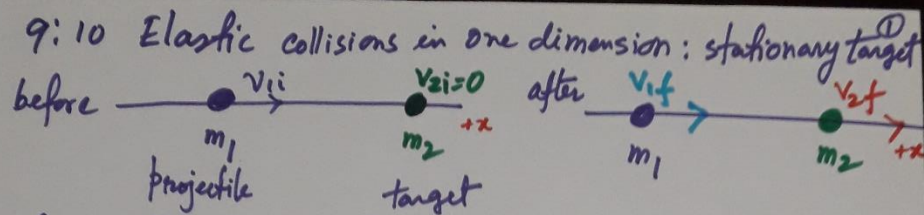 9:10 Elastic collisions in one dimension: stationary target ①
before v1i v2i=0 after v1f v2f
+x +x
m1 m2 m1 m2
projectile target